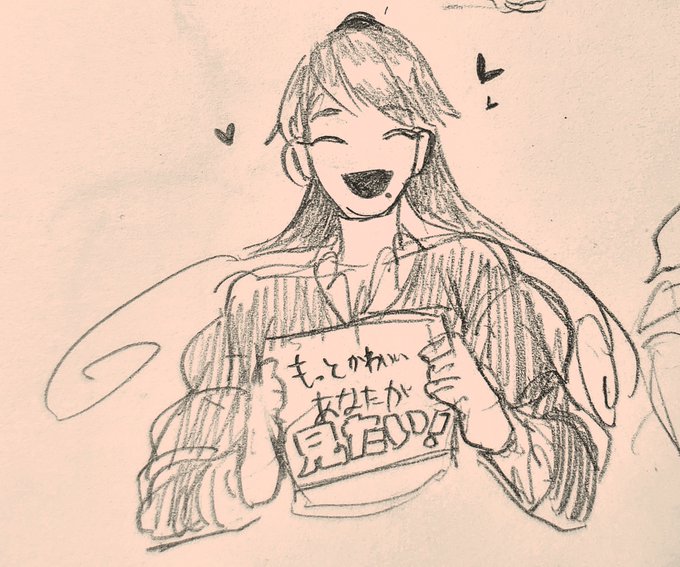 もっとかわいい
あなたが
見たい!